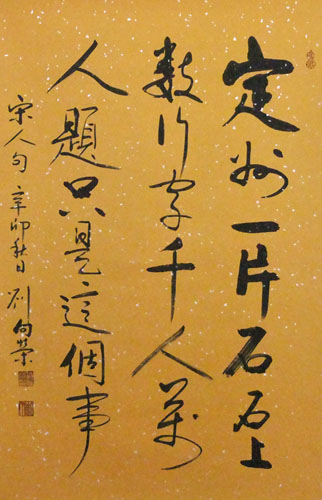 定州一片石石上
数行字千人萬
人題只是這個事
宋人句 辛卯秋日 刘向荣